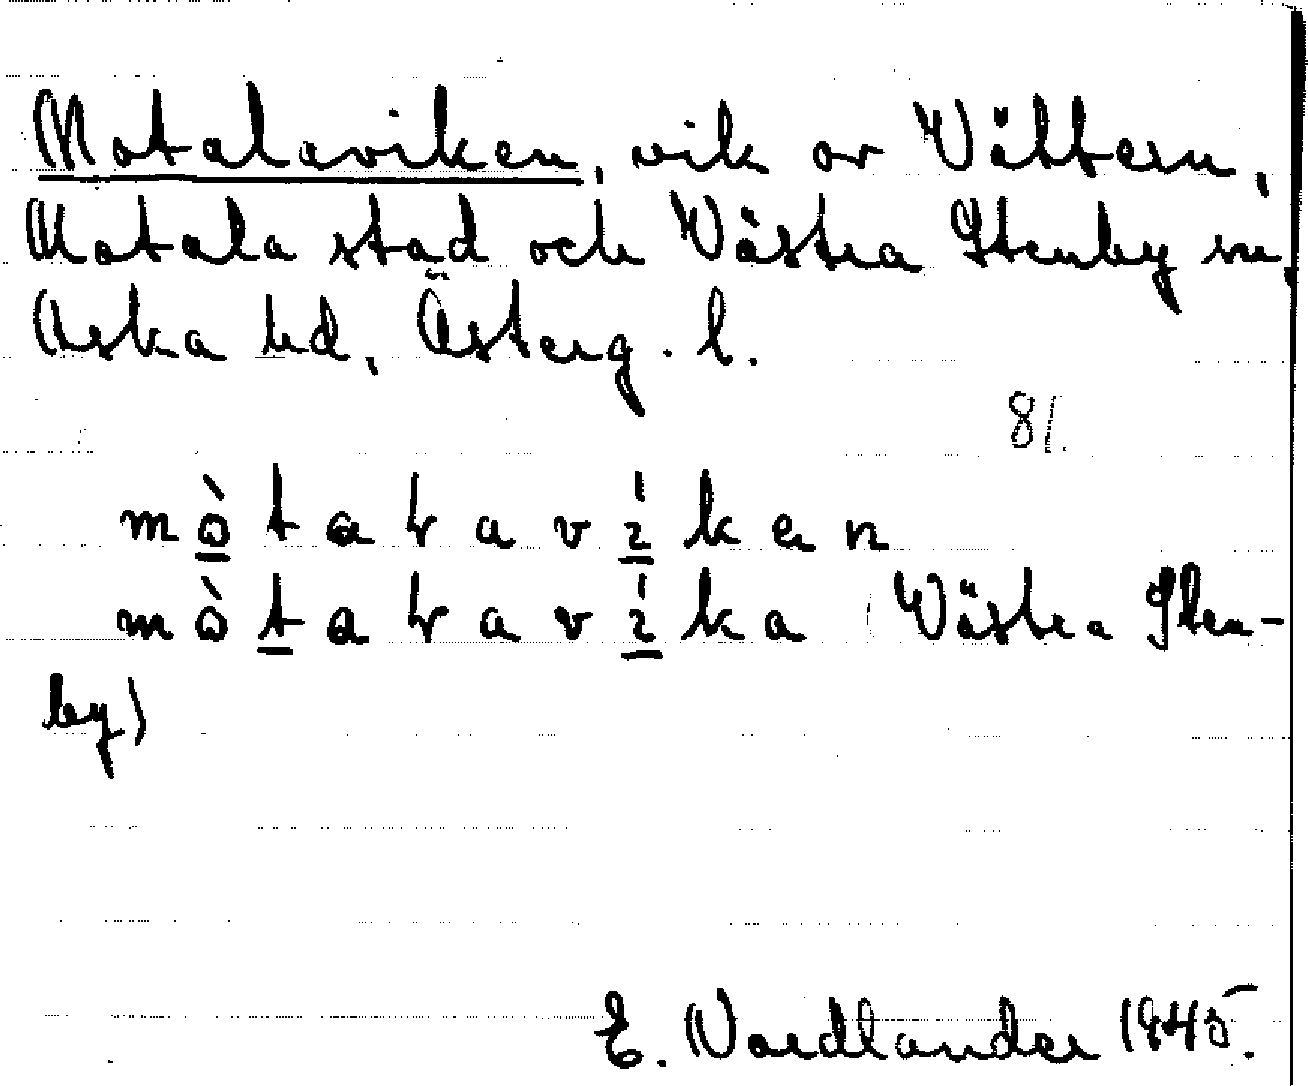 Motalaviken, vik av Vättern,
Motala stad och Västra Stenby sn,
Aska hd, Österg. l.
81.
mò̲taɫaví̲ken
mòt̲aɫaví̲ka (Västra Sten-
by)
E. Nordlander 1945.